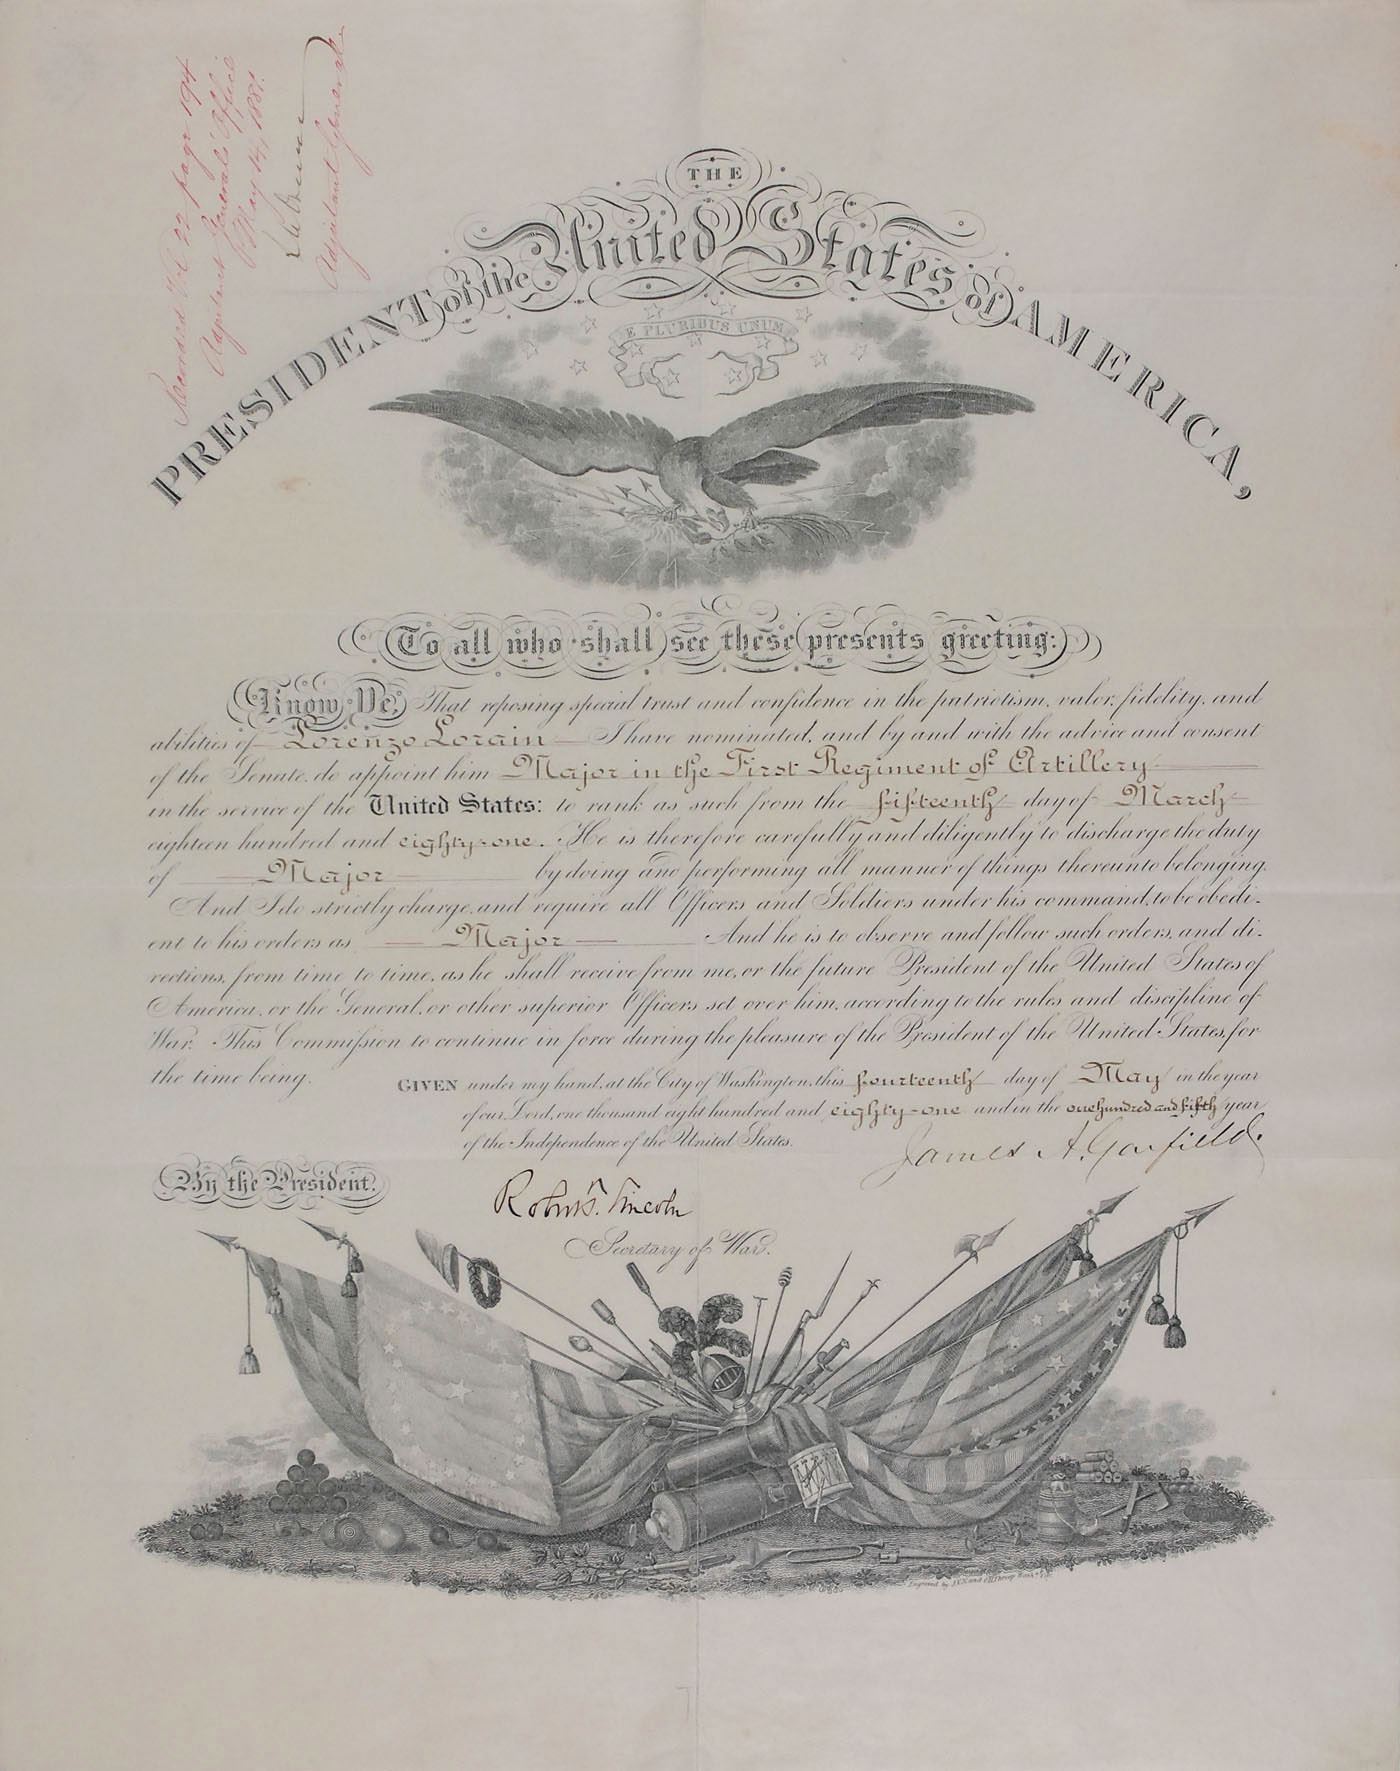 Recorded Vol 22 page 194
Adjutant General's Office
May 14, 1881.
Adjutant General.
THE
PRESIDENT of the United States of AMERICA,
E PLURIBUS UNUM
To all who shall see these presents greeting:
Know Ye, That reposing special trust and confidence in the patriotism, valor, fidelity, and
abilities of Lorenzo Lorain I have nominated, and by and with the advice and consent
of the Senate, do appoint him Major in the First Regiment of Artillery
in the service of the United States: to rank as such from the fifteenth day of March
eighteen hundred and eighty-one. He is therefore carefully and diligently to discharge the duty
of Major by doing and performing all manner of things thereunto belonging.
And I do strictly charge, and require all Officers and Soldiers under his command, to be obedi-
ent to his orders as Major And he is to observe and follow such orders, and di-
rections, from time to time, as he shall receive from me, or the future President of the United States of
America, or the General, or other superior Officers set over him, according to the rules and discipline of
War. This Commission to continue in force during the pleasure of the President of the United States, for
the time being.
GIVEN under my hand, at the City of Washington, this fourteenth day of May in the year
of our Lord, one thousand eight hundred and eighty-one and in the one hundred and fifth year
of the Independence of the United States.
James A. Garfield.
By the President.
Robert T. Lincoln
Secretary of War.
Engraved by